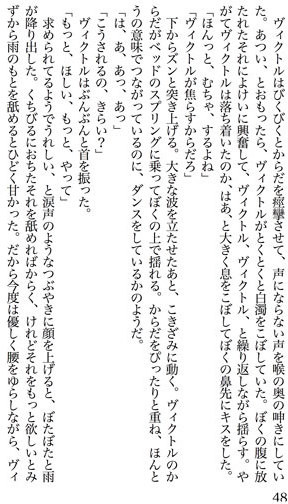 ヴィクトルはびくびくとからだを痙攣させて、声にならない声を喉の奥の呻きにしてい
た。あつい、とおもったら、ヴィクトルがとくとくと白濁をこぼしていた。ぼくの腹に放
たれたそれによけいに興奮して、ヴィクトル、ヴィクトル、と繰り返しながら揺らす。や
がてヴィクトルは落ち着いたのか、はあ、と大きく息をこぼしてぼくの鼻先にキスをした。
「ほんっと、むちゃ、するよね」
「ヴィクトルが焦らすからだろ」
　下からズンと突き上げる。大きな波を立たせたあと、こきざみに動く。ヴィクトルのか
らだがベッドのスプリングに乗ってぼくの上で揺れる。からだをぴったりと重ね、ほんと
うの意味でつながっているのに、ダンスをしているかのようだ。
「は、あ、あっ、あっ」
「こうされるの、きらい？」
　ヴィクトルはぶんぶんと首を振った。
「もっと、ほしい、もっと、やって」
　求められてるようでうれしい、と涙声のようなつぶやきに顔を上げると、ぼたぼたと雨
が降り出した。くちびるにおちたそれを舐めればからく、けれどそれをもっと欲しいとみ
ずから雨のもとを舐めるとひどく甘かった。だから今度は優しく腰をゆらしながら、ヴィ
48